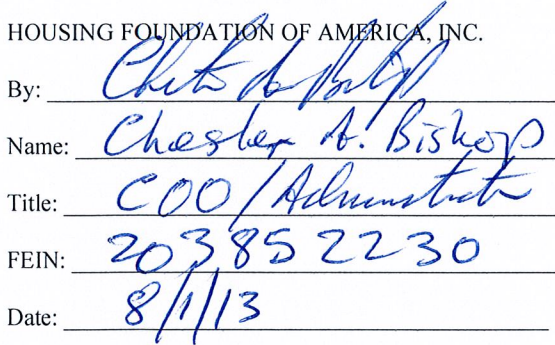 HOUSING FOUNDATION OF AMERICA, INC.
By: Chester A. Bishop
Name: Chester A. Bishop
Title: COO/Administrator
FEIN: 203852230
Date: 8/1/13